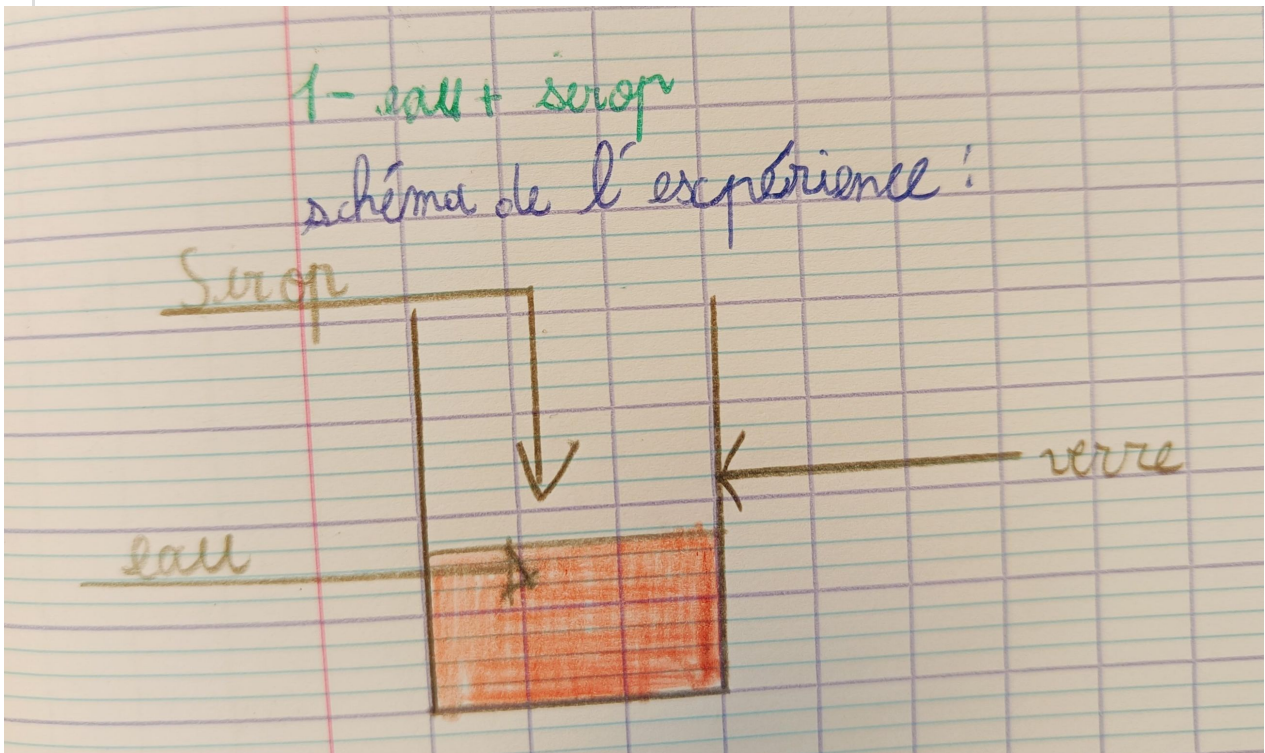 1- eau + sirop
schéma de l'expérience :
Sirop
verre
eau